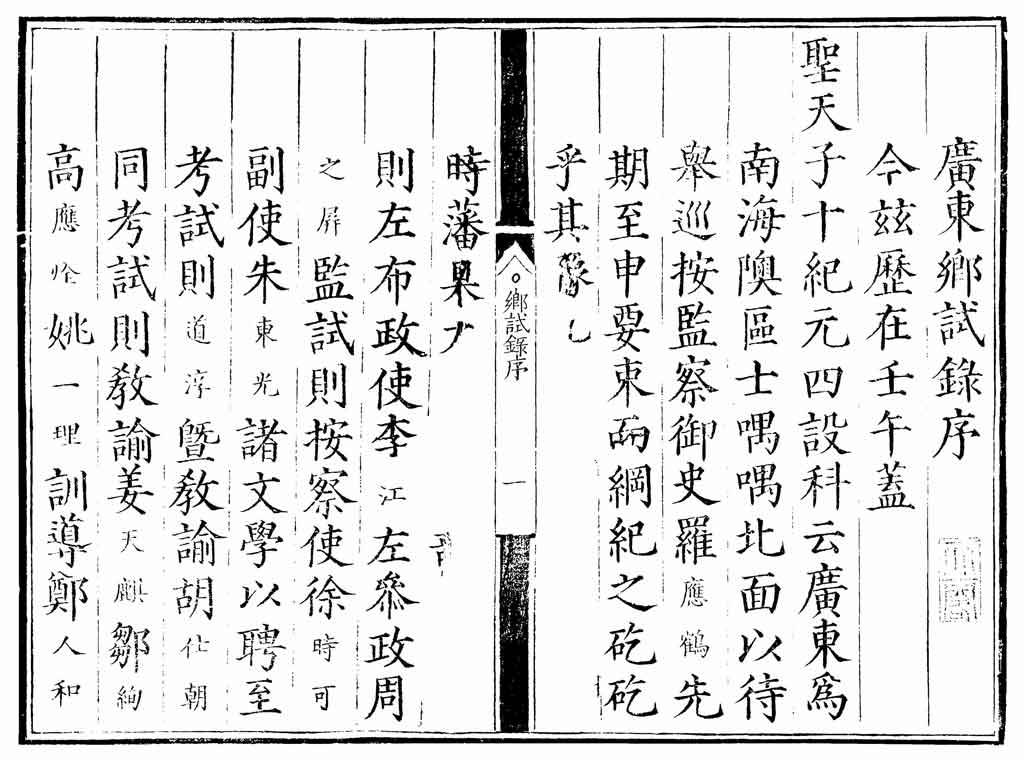 廣東鄉試錄序
今茲歷在壬午蓋
聖天子十紀元四設科云廣東爲
南海隩區士喁喁北面以待
舉巡按監察御史羅應鶴先
期至申要束兩綱紀之矻矻
乎其
鄉試錄序
一
時藩臬
則左布政使李江左叅政周
之屏監試則按察使徐時可
副使朱東光諸文學以聘至
考試則道淳曁敎諭胡仕朝
同考試則敎諭姜天麒鄒絢
高應姚一理訓導鄭人和